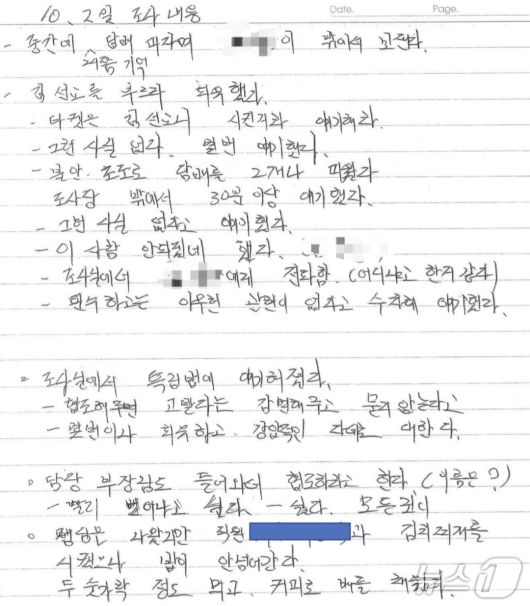 10. 2일 조사 내용
Date. Page.
- 중간에 담배 피자며 이 밖에서
저쪽 기억
- 김선교를 부르라 회유했다.
- 다 것은 김선교 시킨지라 얘기해라.
- 그런 사실 없다. 몇번 얘기했다.
- 불안. 초조로 담배를 2개나 피웠다
조사담 밖에서 30분이상 얘기했다.
- 그런 사실 없다고 얘기했다.
- 이 사람 안되겠네 했다.
- 조사실에서 에게 전화함. (어디냐고 한지 같다)
- 군수하고는 아무런 관련이 없다고 수차례 얘기했다.
- 조사실에서 특검법에 얘기하였다.
- 협조해주면 고발라는 감면해주고 묻지 않는다고
- 몇번이나 회유하고. 강압적인 대한다.
담당 부장님도 들어와서 협조하라고 한다 (이름은?)
- 빨리 싫다. - 싫다. 모든것이
점심은 사왔지만 직원 과 김치찌개를
시켰으나 밥이 안넘어간다.
두 숟가락 정도 먹고, 커피로 배를
뉴스1